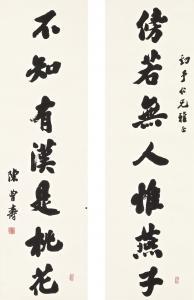 傍若無人惟燕子
不知有漢是桃花
仁兄雅正
陳曾壽